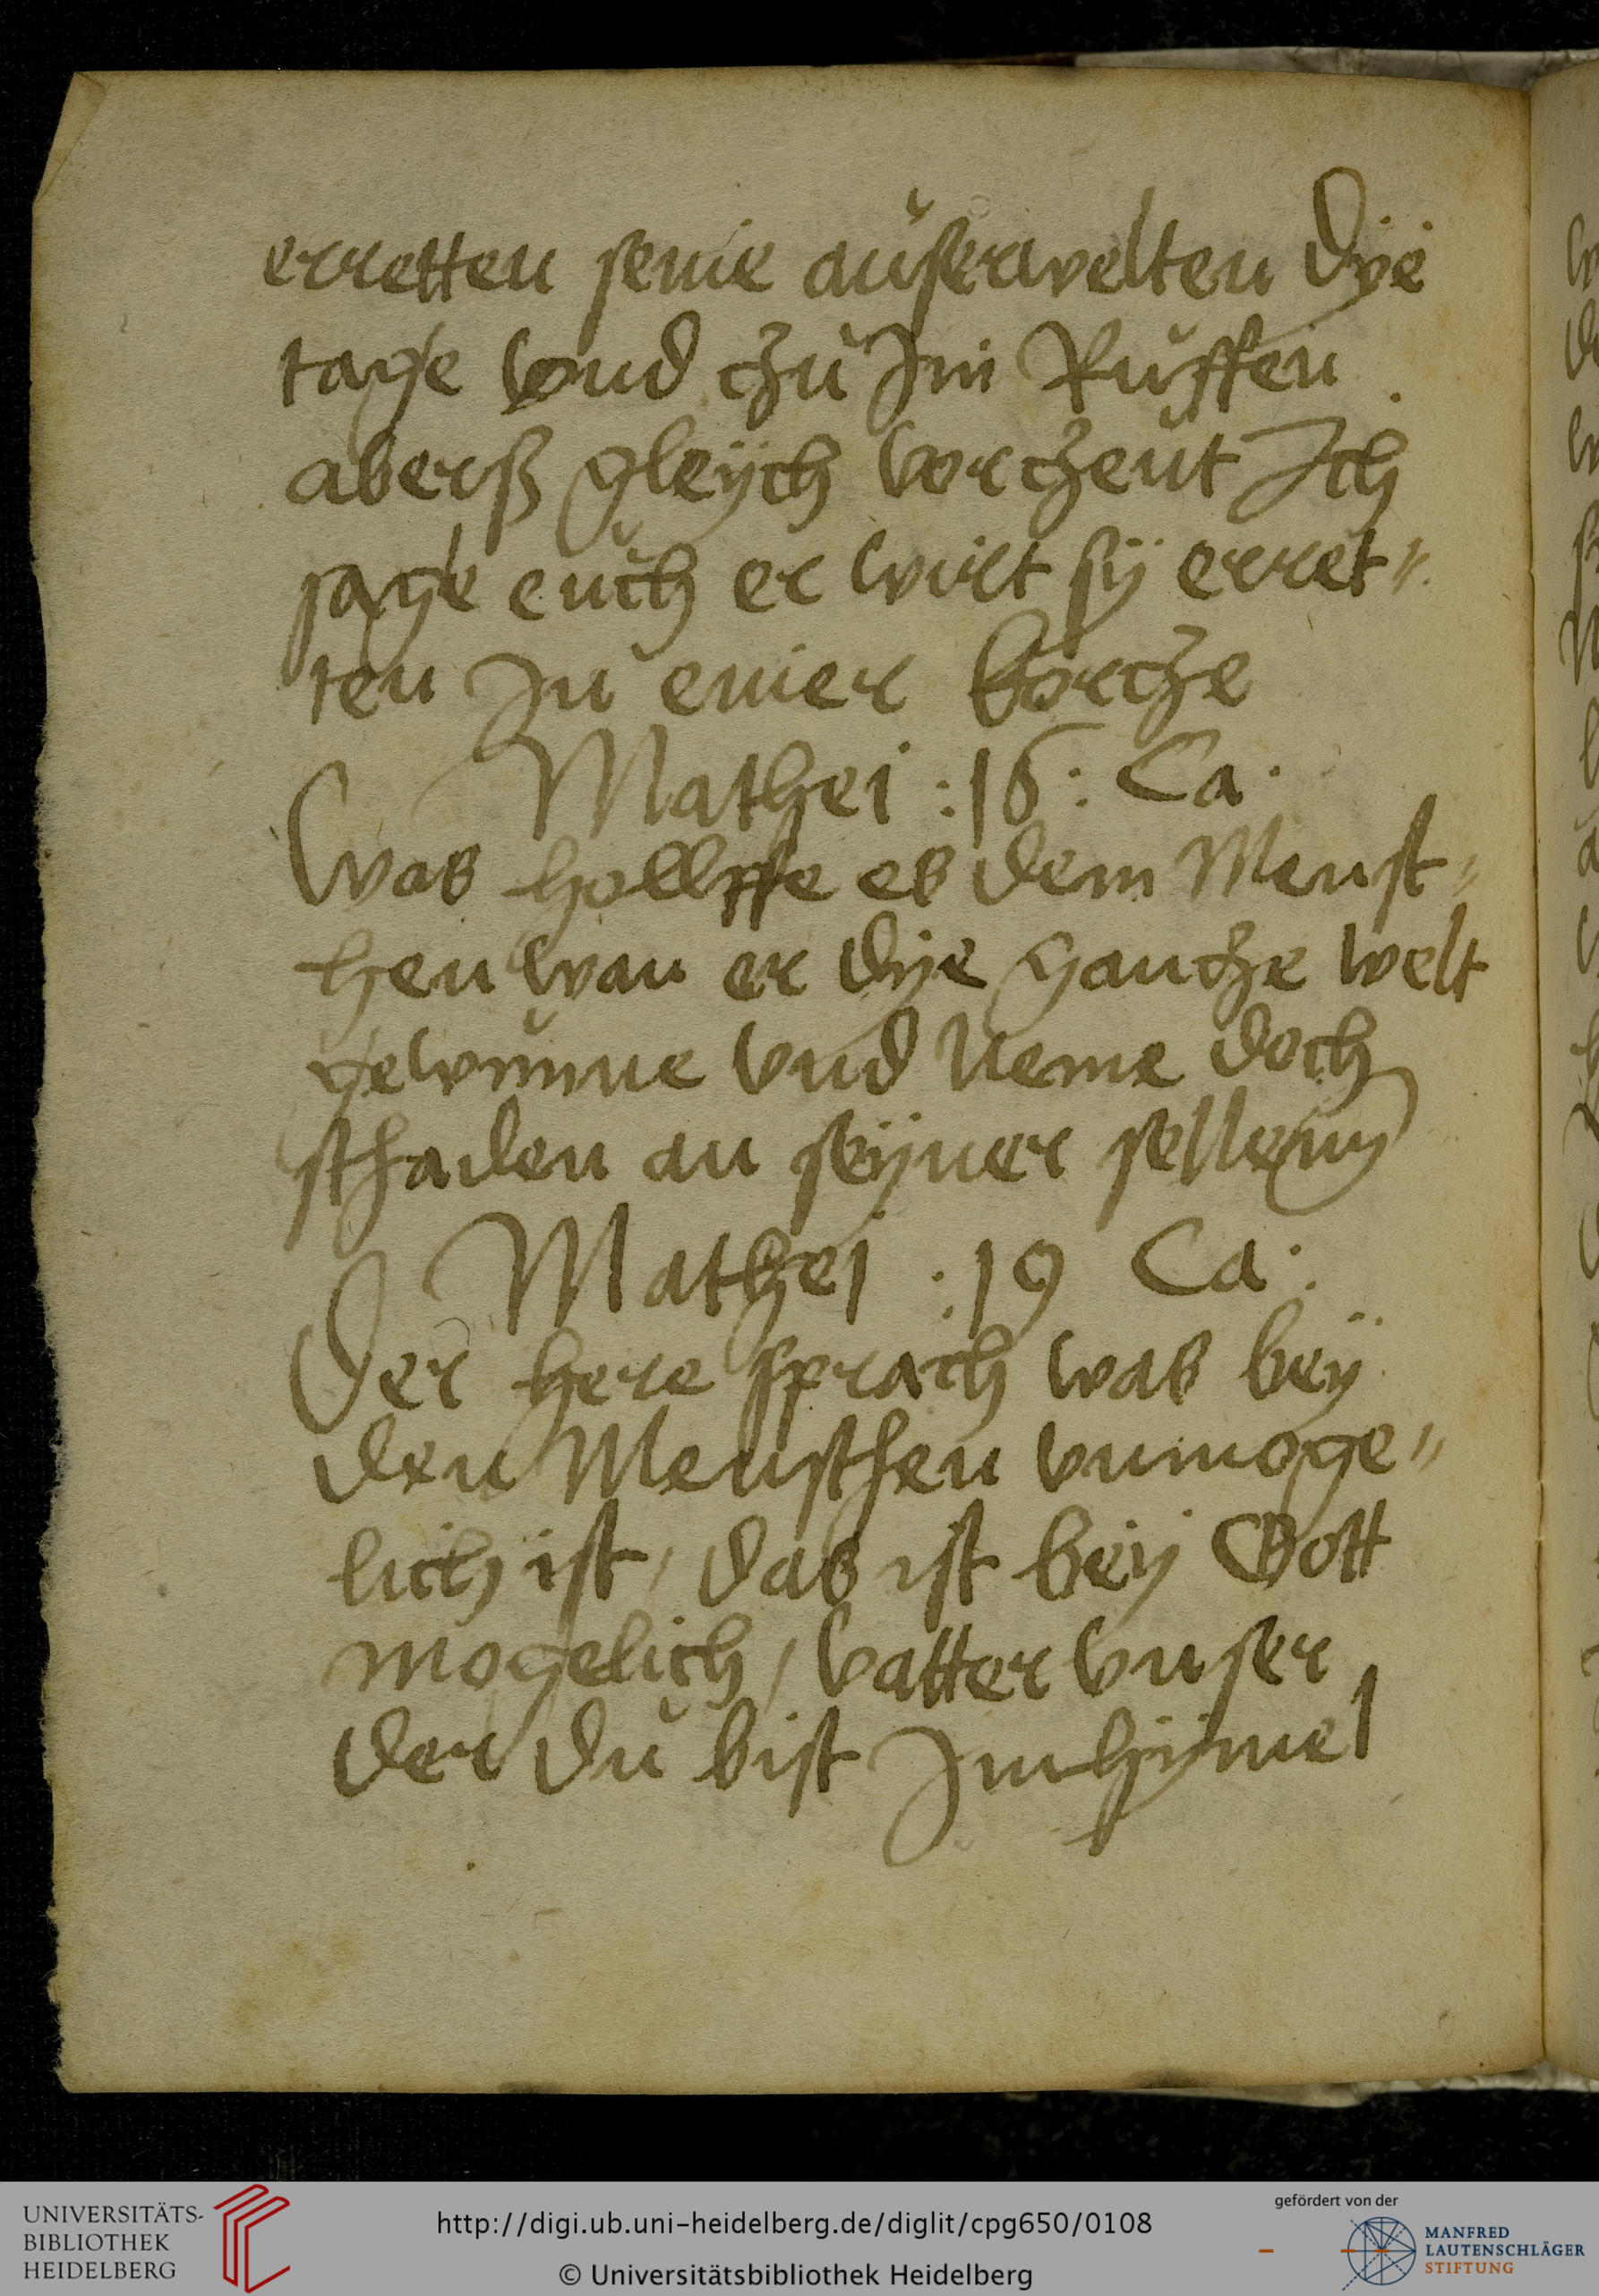 erretten seine auserwelten Dye
tage vnd czu Im Ruffen
aberß gleych vorczeut Ich
sage euch er wirt sy erret"
ten In einer korcze
Mathei :16: Ca.
Was hollffe es dem Mensc"
hen wan er dye gancze welt
gewunne vnd neme doch
schaden an seyner selleny
Mathei :19 Ca:
Der here sprach was bey
den Menschen vnmoge"
lich ist, das ist bey Gott
mogelich, vatter vnser
der du bist Im hymel
UNIVERSITÄTS-
BIBLIOTHEK
HEIDELBERG
http://digi.ub.uni-heidelberg.de/diglit/cpg650/0108
© Universitätsbibliothek Heidelberg
gefördert von der
MANFRED
LAUTENSCHLÄGER
STIFTUNG